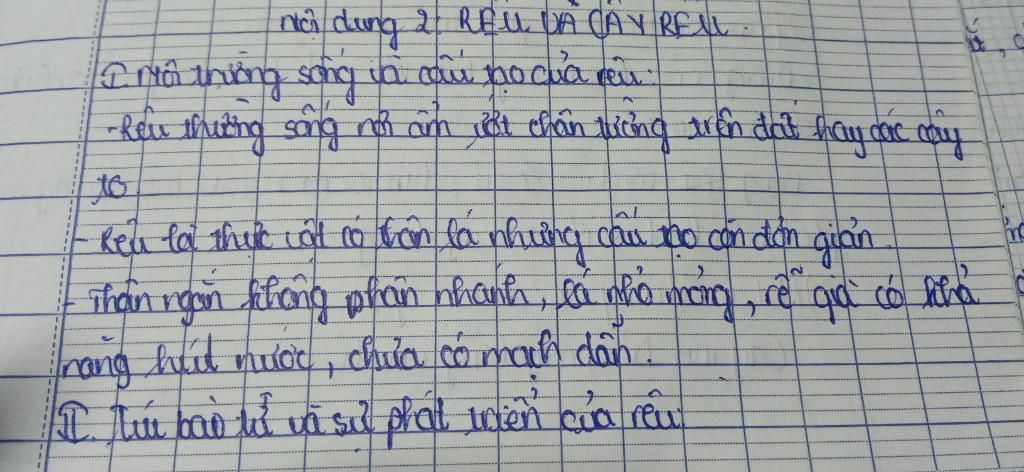 Nội dung 2: RÊU VÀ CÂY RÊU.
I Môi trường sống và cấu tạo của rêu:
- Rêu thường sống nơi ẩm ướt chân tường trên đất hay các cây
to
- Rêu là thực vật có thân lá nhưng cấu tạo còn đơn giản.
- Thân ngắn không phân nhánh, lá nhỏ mỏng, rễ giả có khả
năng hút nước, chưa có mạch dẫn.
II. Túi bào tử và sự phát triển của rêu